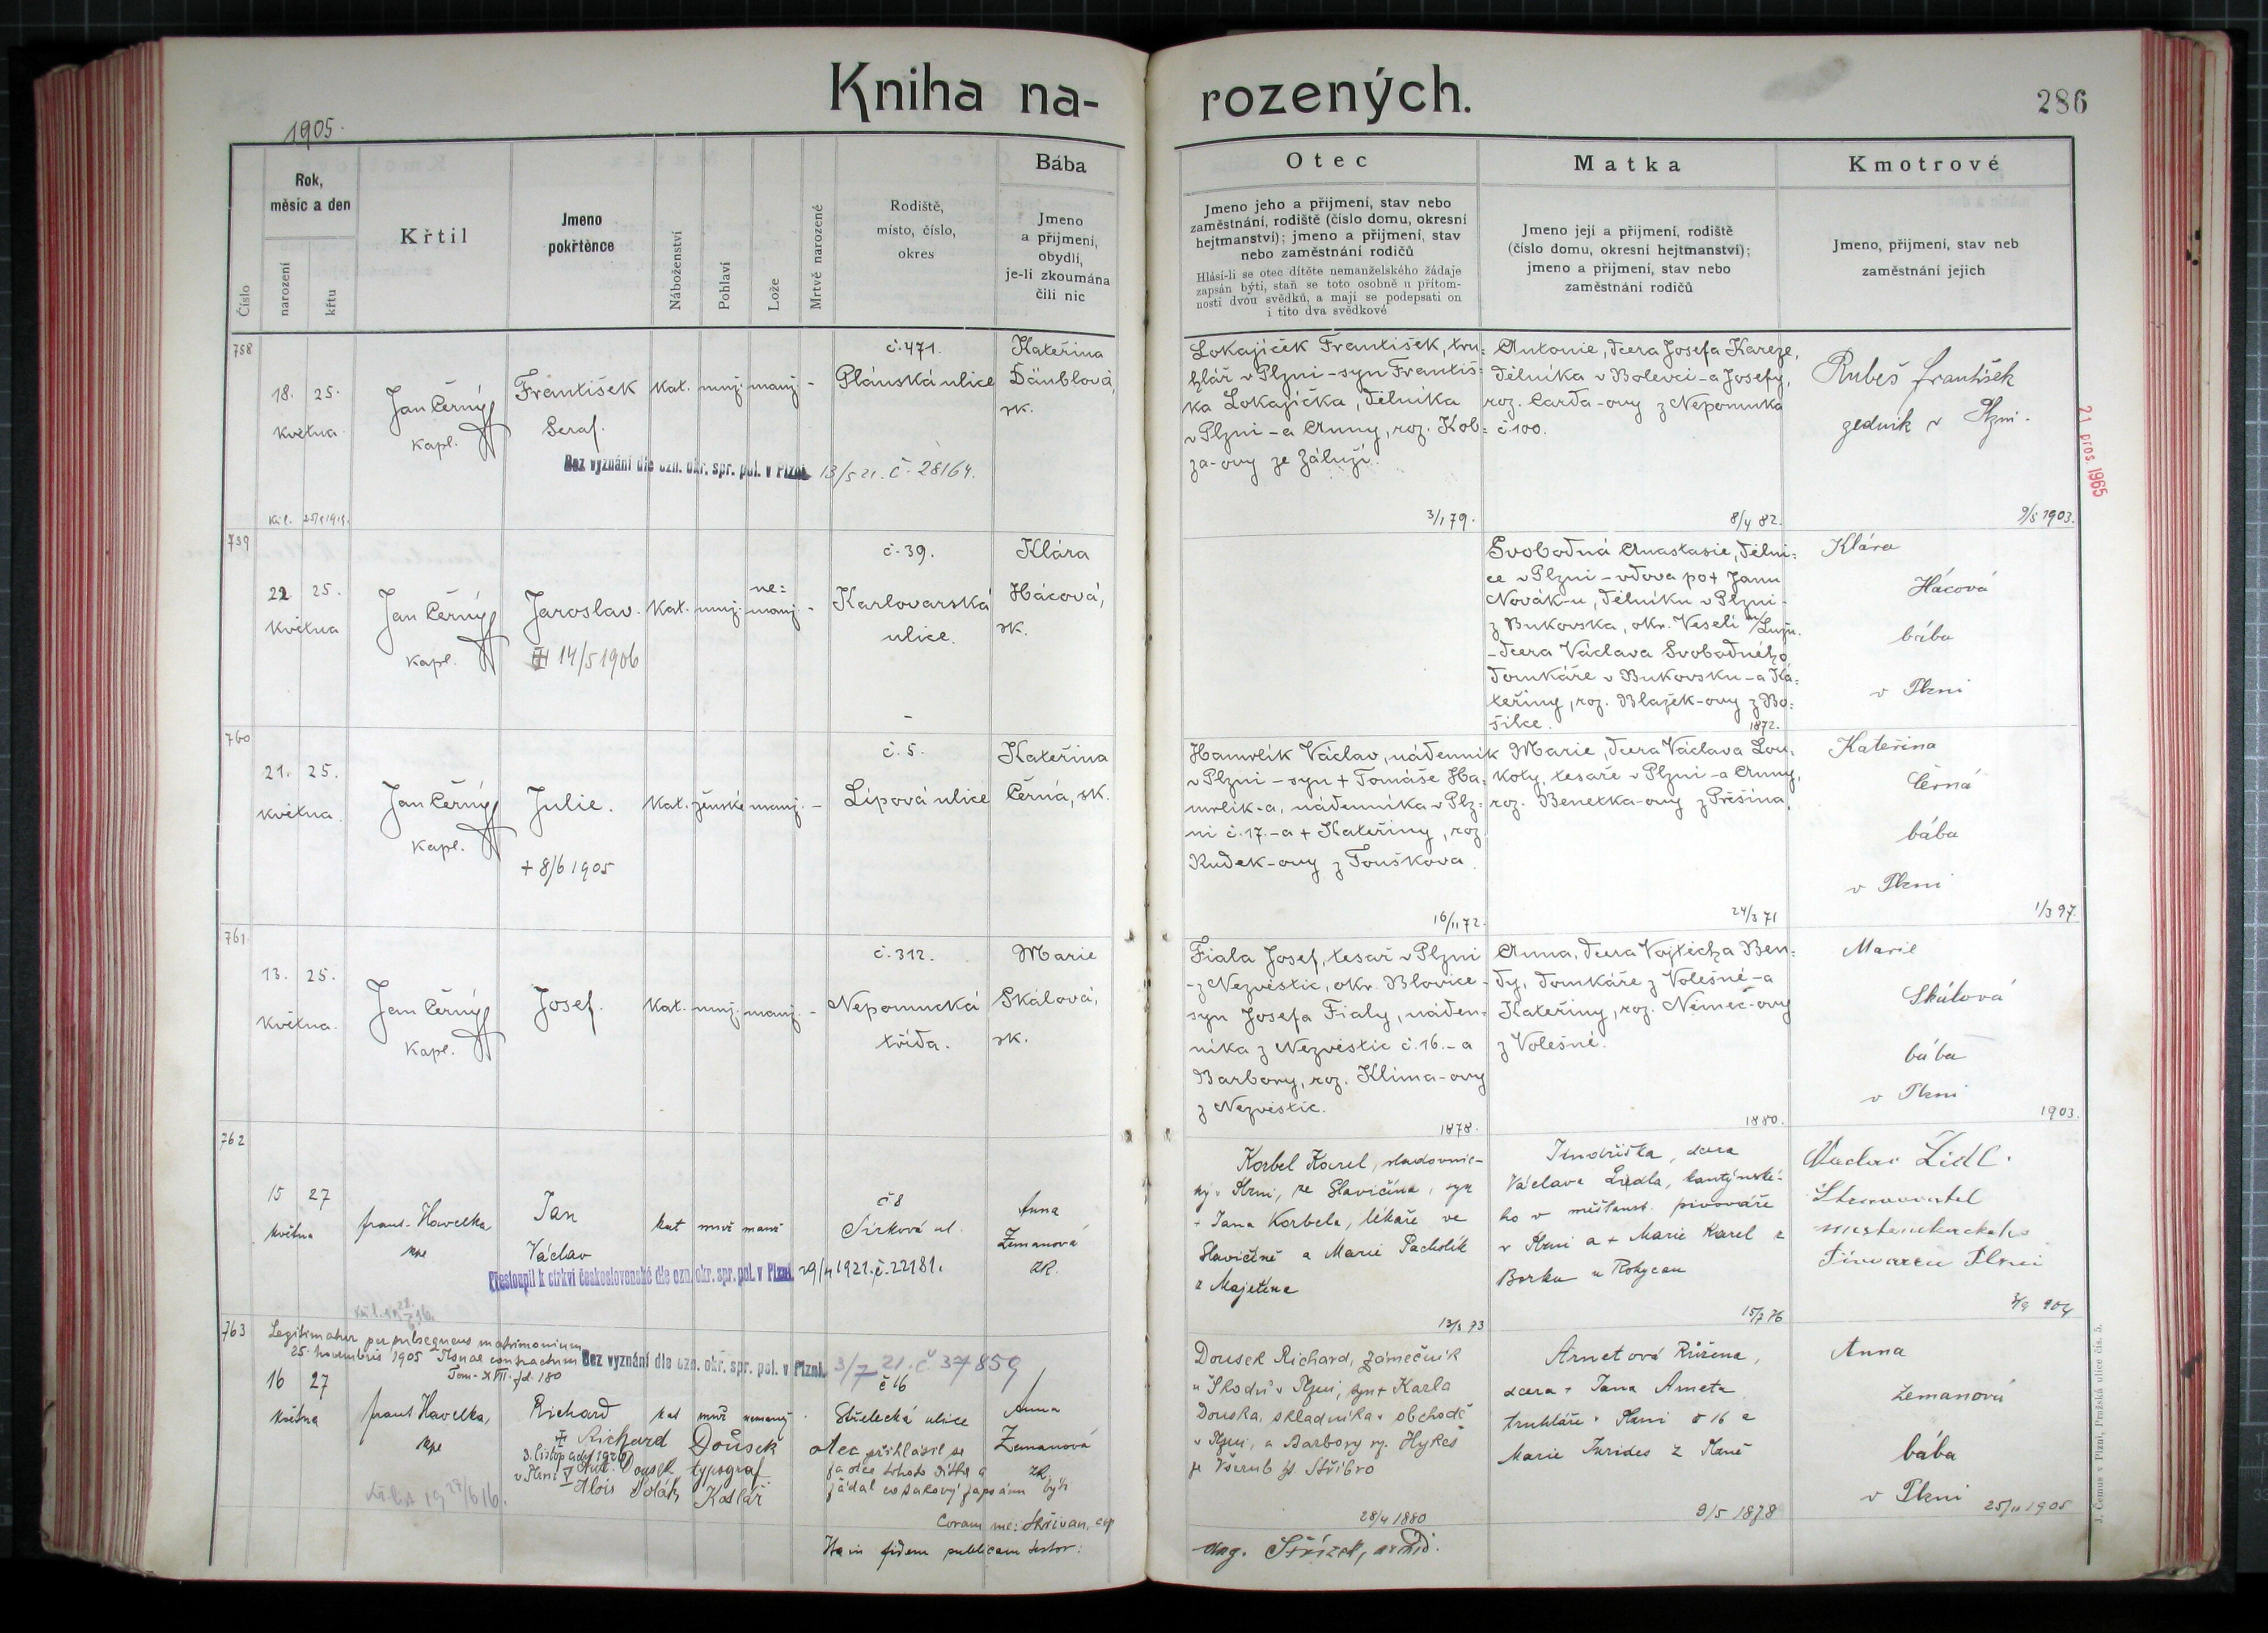 Kniha na-
rozených.
286
1905.
Číslo
Rok,
měsíc a den
narození
křtu
Křtil
Jmeno
pokřtěnce
Náboženství
Pohlaví
Lože
Mrtvě narozené
Rodiště,
místo, číslo,
okres
Bába
Jmeno
a přijmení,
obydlí,
je-li zkoumána
čili nic
Otec
Jmeno jeho a přijmení, stav nebo
zaměstnání, rodiště (číslo domu, okresní
hejtmanství); jmeno a přijmení, stav
nebo zaměstnání rodičů
Hlásí-li se otec dítěte nemanželského žádaje
zapsán býti, staň se toto osobně u přítom-
nosti dvou svědků, a mají se podepsati on
i tito dva svědkové
Matka
Jmeno její a přijmení, rodiště
(číslo domu, okresní hejtmanství);
jmeno a přijmení, stav nebo
zaměstnání rodičů
Kmotrové
Jmeno, přijmení, stav neb
zaměstnání jejich
758
18. 25.
května
Jan Černý
kapl.
František
Seraf.
kat. muž. manž. -
č. 471.
Plánská ulice
Kateřina
Däublová,
zk.
Bez vyznání dle ozn. okr. spr. pol. v Plzni. 13/5 21. č. 28164.
Lokajíček František, tru=
hlář v Plzni - syn Františ=
ka Lokajíčka, dělníka
v Plzni - a Anny, roz. Kob=
za-ovy ze Záluží.
3/1 79.
Antonie, dcera Josefa Kareze,
dělníka v Bolevci - a Josefy,
roz. Carda-ovy z Nepomuka
č. 100.
8/4 82.
Rubeš František
zedník v Plzni.
9/5 1903.
21 pros. 1965
759
22. 25.
května
Jan Černý
kapl.
Jaroslav.
14/5 1906
kat. muž. ne=
manž. -
č. 39.
Karlovarská
ulice.
Klára
Hácová,
zk.
Svobodná Anastasie, dělni=
ce v Plzni - vdova po + Janu
Novák-u, dělníku v Plzni -
z Bukovska, okr. Veselí n/Lužn.
- dcera Václava Svobodného
domkáře v Bukovsku - a Ka=
teřiny, roz. Blažek-ovy z Bo=
šilce.
1872.
Klára
Hácová
bába
v Plzni
760
21. 25.
května.
Jan Černý
kapl.
Julie.
+ 8/6 1905
kat. ženské manž. -
č. 5.
Lípová ulice
Kateřina
Černá, zk.
Hamrlík Václav, nádenník
v Plzni - syn + Tomáše Ha=
mrlík-a, nádenníka v Plz=
ni č. 17. - a + Kateřiny, roz.
Rudek-ovy z Touškova.
16/11 72.
Marie, dcera Václava Lou=
koty, tesaře v Plzni - a Anny,
roz. Benetka-ovy z Přešína.
24/3 71
Kateřina
Černá
bába
v Plzni
1/3 97.
761
13. 25.
května.
Jan Černý
kapl.
Josef.
kat. muž. manž. -
č. 312.
Nepomucká
třída.
Marie
Skálová,
zk.
Fiala Josef, tesař v Plzni
- z Nezvěstic, okr. Blovice -
syn Josefa Fialy, náden=
níka z Nezvěstic č. 16. - a
Barbory, roz. Klima-ovy
z Nezvěstic.
1878.
Anna, dcera Vojtěcha Ben=
dy, domkáře z Volešné - a
Kateřiny, roz. Němeč-ovy
z Volešné.
1880.
Marie
Skálová
bába
v Plzni
1903.
762
15 27
května
Frant. Havelka
kpl
Jan
Václav
kat muž manž
č 8
Sirková ul.
Anna
Zemanová
zk.
Přestoupil k církvi československé dle ozn. okr. spr. pol. v Plzni. 29/4 1921. č. 22181.
Korbel Karel, sladovnic-
ký v Plzni, ze Slavičína, syn
+ Jana Korbela, lékaře ve
Slavičíně a Marie Pacholík
z Majetína
13/3 73
Jindřiška, dcera
Václava Lidla, kantýnské-
ho v měšťanst. pivováře
v Plzni a + Marie Karel z
Borku u Rokycan
15/7 76
Václav Židl.
Plzni
3/9 904
763
Legitimatur per subsequens matrimonium
25. novembris 1905 Plsnae contractum
Tom. XVII. fol. 180
Bez vyznání dle ozn. okr. spr. pol. v Plzni. 3/7 21. č 37859
16 27
května
Frant Havelka,
kpl
Richard
kat muž nemanž
č 16
Střelecká ulice
Anna
Zemanová
zk.
Richard Doušek otec přihlásil se
3. listopadu 1926
v Plzni
Ant. Doušek typograf za otce tohoto dítka a
Alois Polák Kotlář žádal co takový zapsánu býti
Coram me: Skřivan, cop
Ita in fidem publicam testor:
Doušek Richard, zámečník
u Škodů v Plzni, syn + Karla
Douška, skladníka v obchodě
v Plzni, a Barbory roz. Hykeš
ze Všerub hs. Stříbro
28/4 1880
Aug. Střízek, arcid.
Arnetová Růžena,
dcera + Jana Arneta
truhláře v Plzni č 16 a
Marie Jurides z Plzně
9/5 1878
Anna
Zemanová
bába
v Plzni
25/11 1905
J. Čemus v Plzni, Pražská ulice čís. 5.